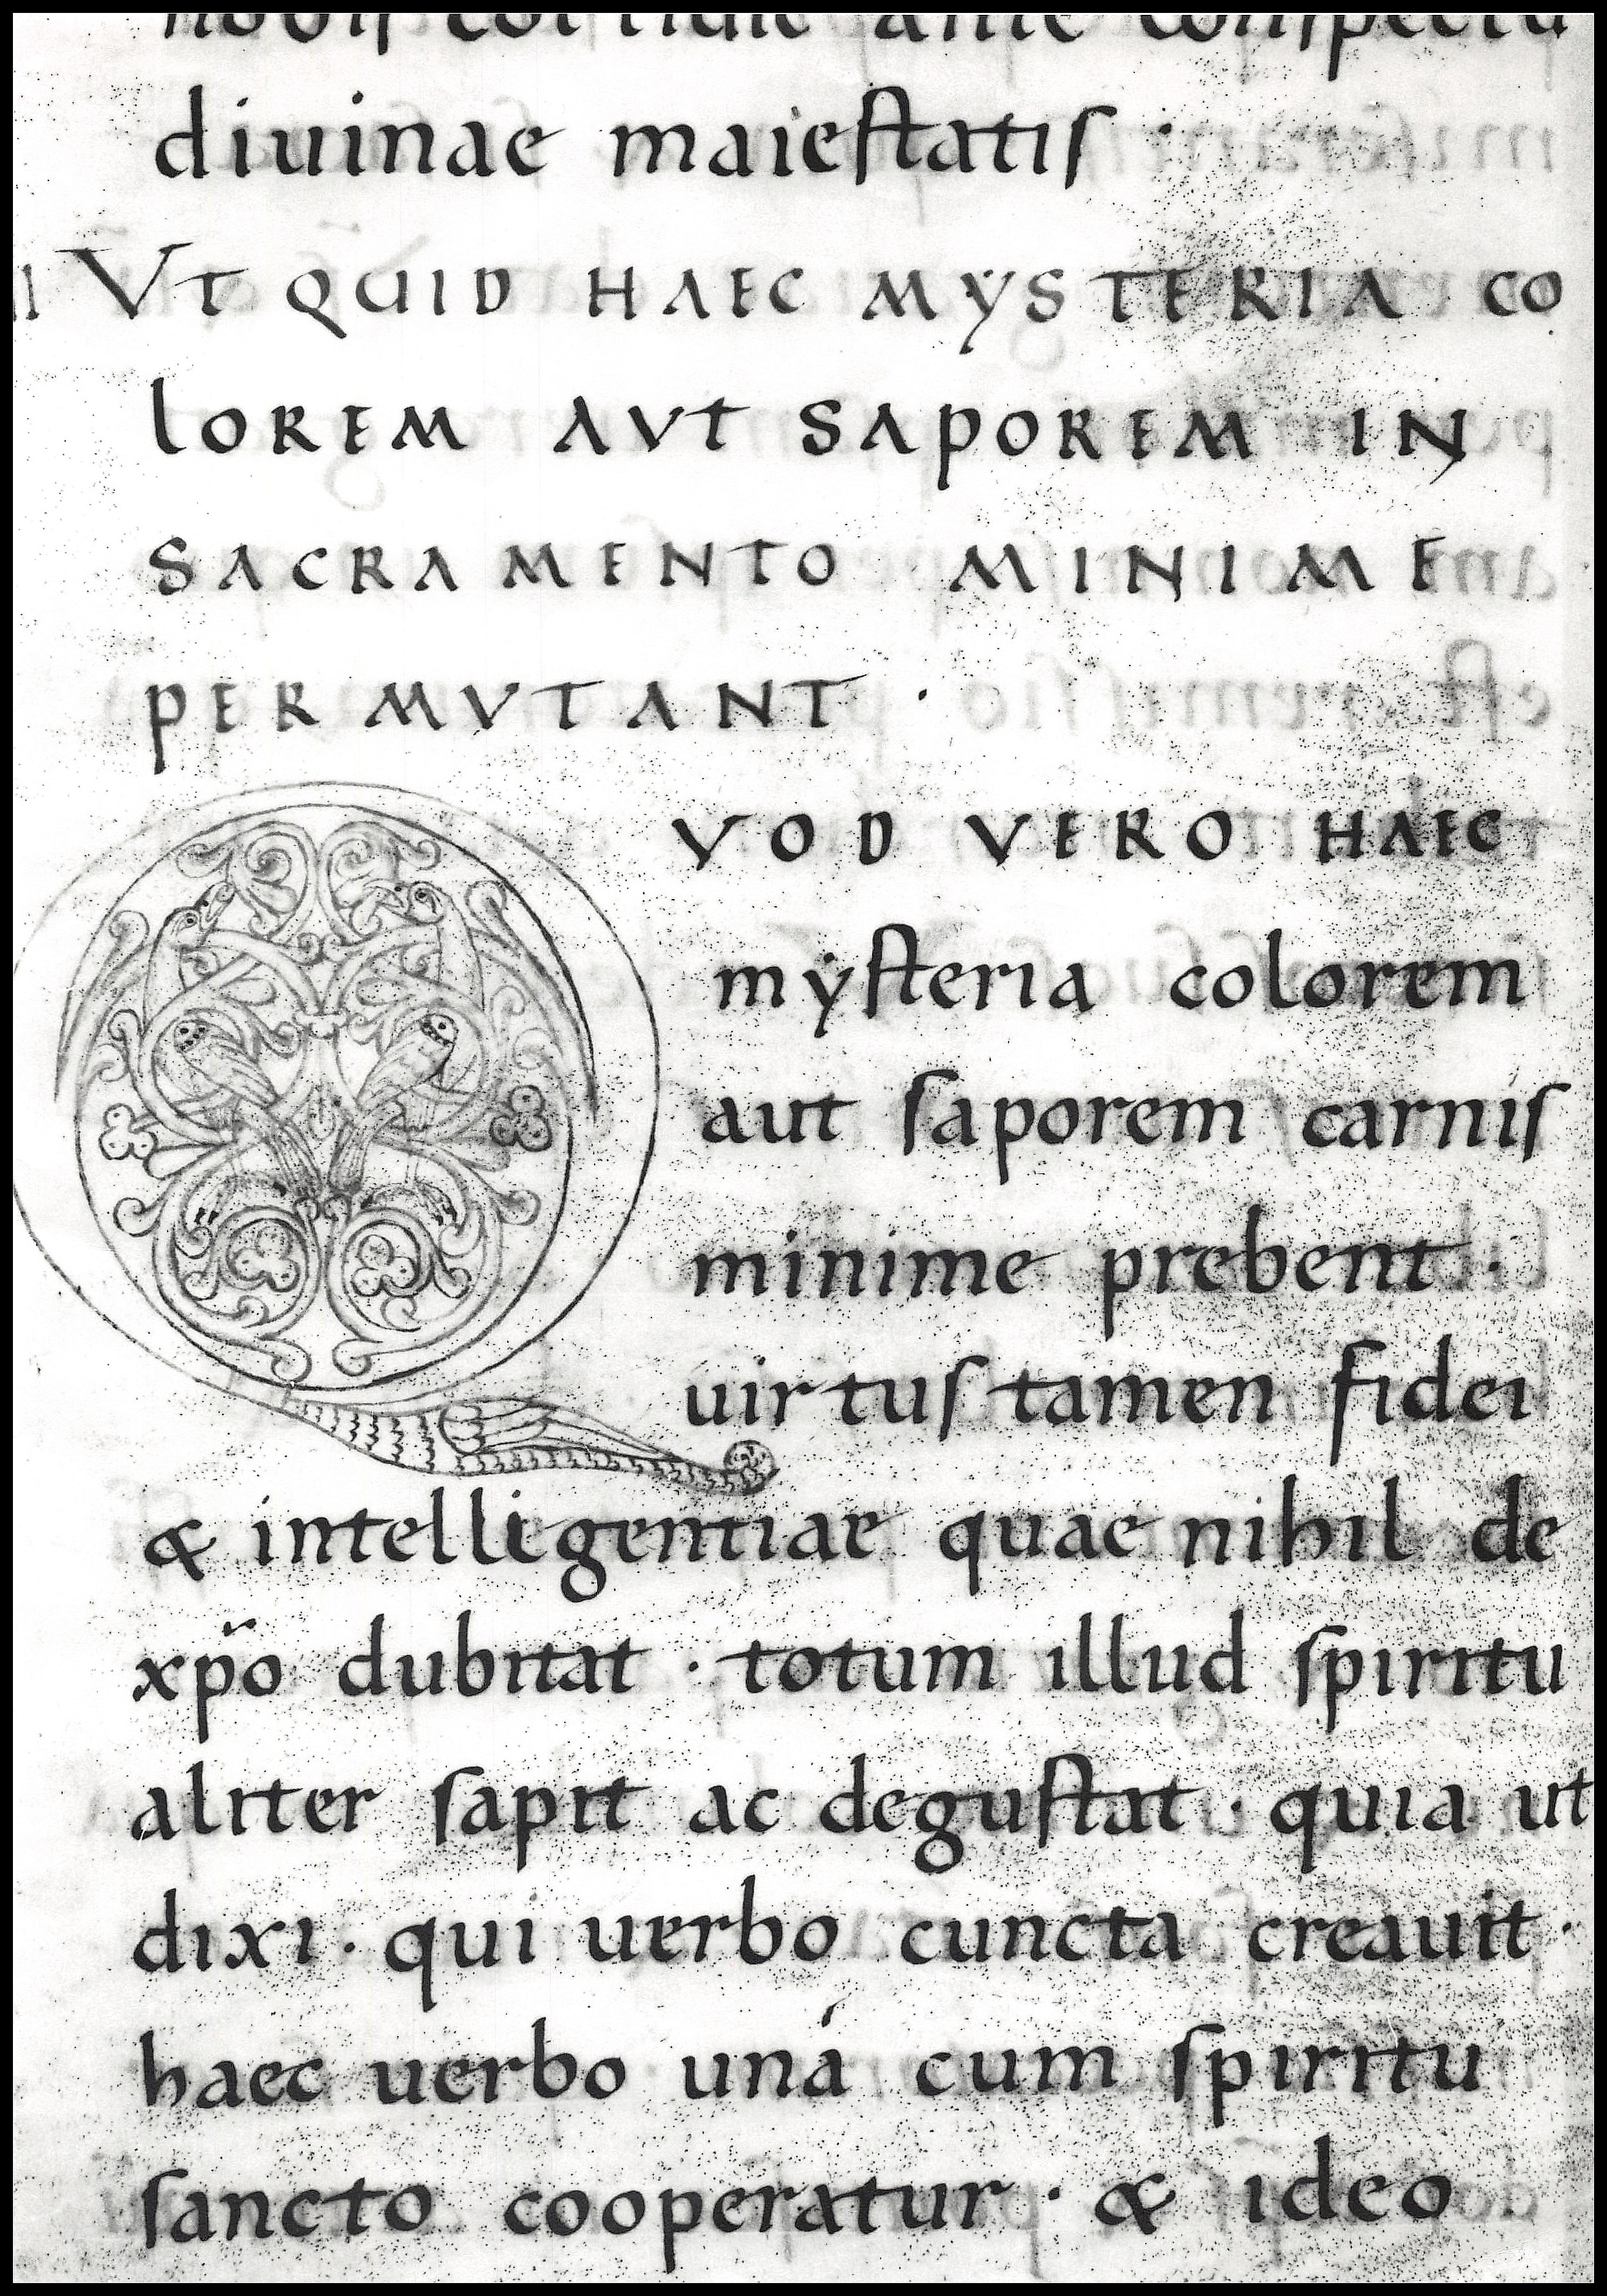 diuinae maiestatis ·
VT QUID HAEC MYSTERIA CO
LOREM AVT SAPOREM IN
SACRAMENTO MINIME
PERMVTANT ·
QVOD VERO HAEC
mysteria colorem
aut saporem carnis
minime prebent ·
uirtus tamen fidei
& intellegentiae quae nihil de
xp̃o dubitat · totum illud spiritu
aliter sapit ac degustat · quia ut
dixi · qui uerbo cuncta creauit ·
haec uerbo uná cum spiritu
sancto cooperatur · & ideo